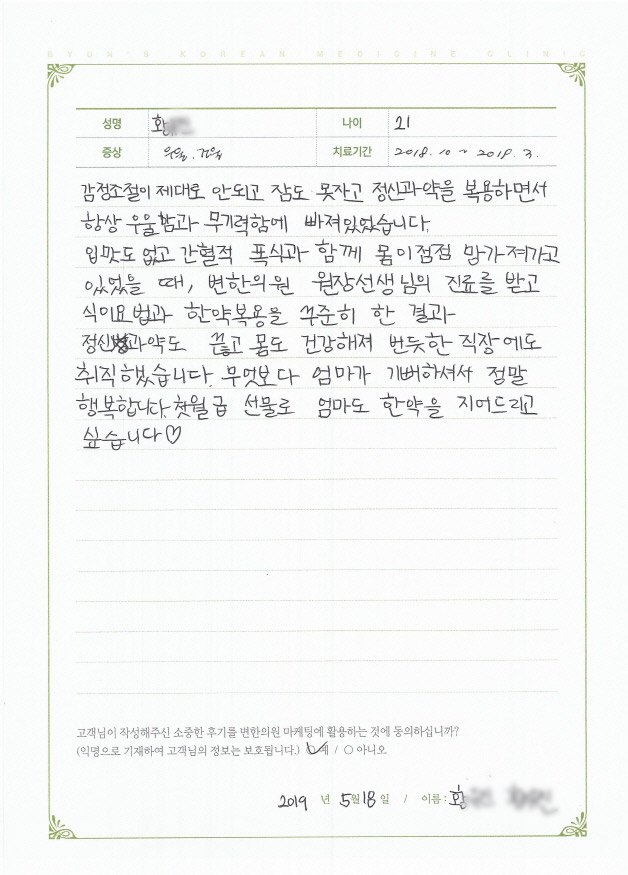 BYUN'S KOREAN MEDICINE CLINIC
성명 황 나이 21
증상 우울. 치료기간 2018. 10 ~ 2019. 3.
감정조절이 제대로 안되고 잠도 못자고 정신과약을 복용하면서
항상 우울함과 무기력함에 빠져있었습니다.
입맛도 없고 간헐적 폭식과 함께 몸이점점 망가져가고
있었을 때, 변한의원 원장선생님의 진료를 받고
식이요법과 한약복용을 꾸준히 한 결과
정신과약도 끊고 몸도 건강해져 번듯한 직장에도
취직했습니다. 무엇보다 엄마가 기뻐하셔서 정말
행복합니다. 첫월급 선물로 엄마도 한약을 지어드리고
싶습니다♡
고객님이 작성해주신 소중한 후기를 변한의원 마케팅에 활용하는 것에 동의하십니까?
(익명으로 기재하여 고객님의 정보는 보호됩니다.) ○ 예 / ○ 아니오
2019 년 5월 18일 / 이름 : 황